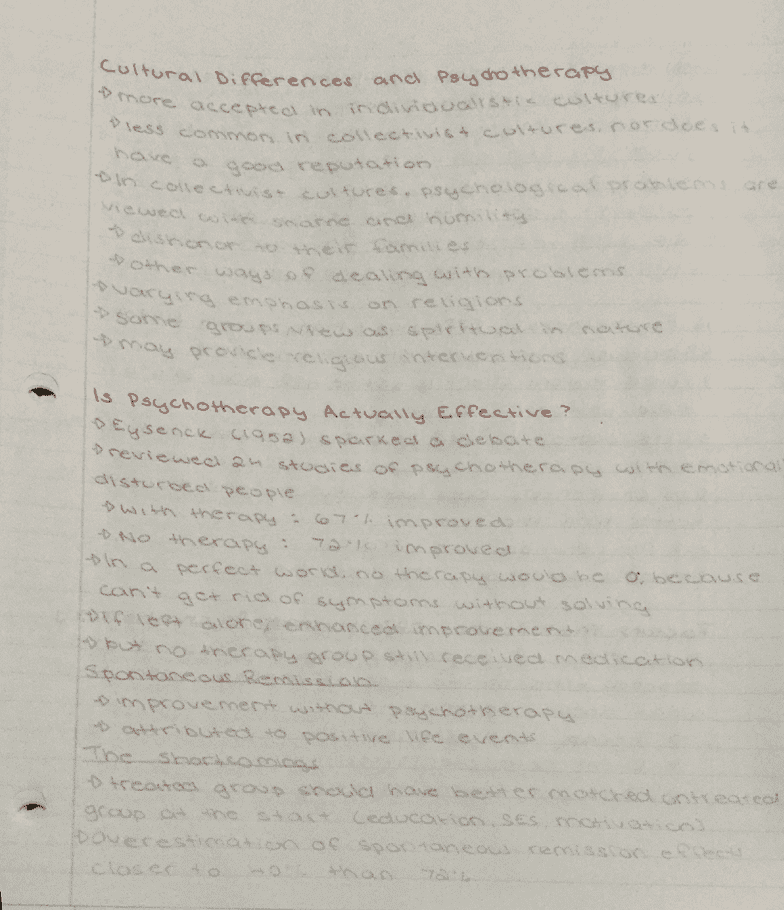 Cultural Differences and Psychotherapy
→ more accepted in individualistic cultures
→ less common in collectivist cultures, nor does it
have a good reputation
→ In collectivist cultures, psychological problems are
viewed with shame and humility
→ dishonor to their families
→ other ways of dealing with problems
→ varying emphasis on religions
→ some groups view as spiritual in nature
→ may provide religious interventions
Is Psychotherapy Actually Effective?
→ Eysenck (1952) sparked a debate
→ reviewed 24 studies of psychotherapy with emotional
disturbed people
→ with therapy: 67% improved
→ No therapy: 72% improved
→ In a perfect world, no therapy would be 0, because
can't get rid of symptoms without solving
→ If left alone, enhanced improvement
→ but no therapy group still received medication
Spontaneous Remission
→ improvement without psychotherapy
→ attributed to positive life events
The shortcomings
→ treated group should have better matched untreated
group at the start (education, SES, motivation)
→ overestimation of spontaneous remission effects
closer to 40% than 72%